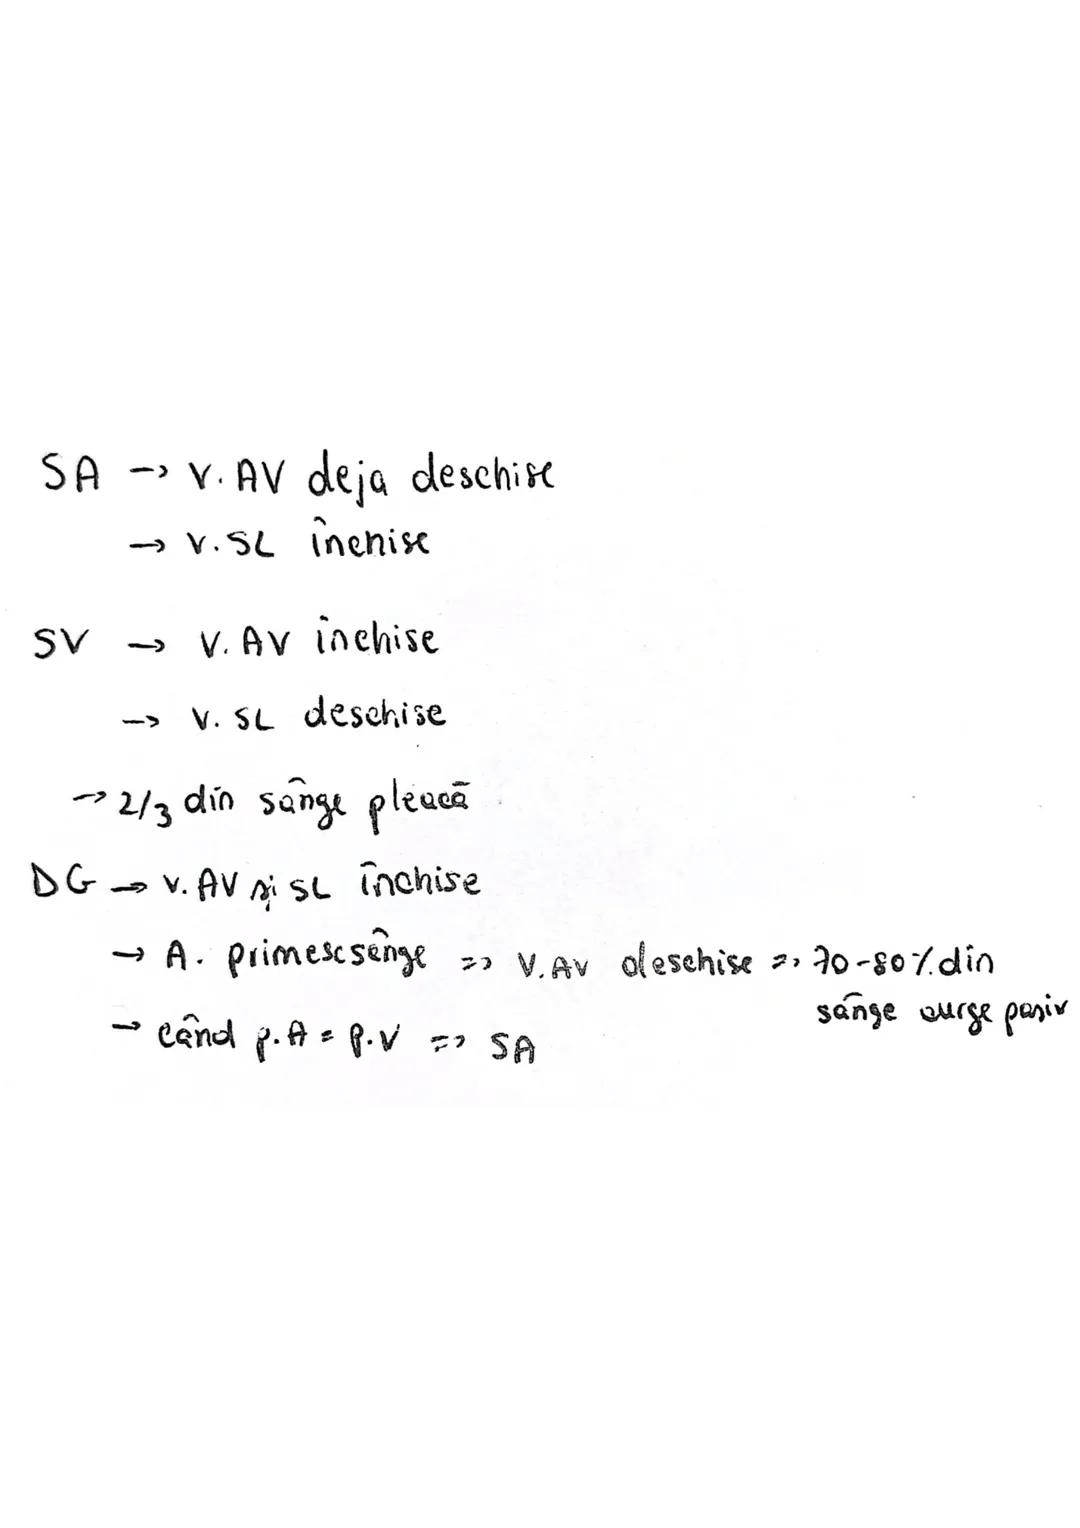 SA → V. AV deja deschise
→ V. SL închise
SV → V. AV închise
→ V. SL deschise
→ 2/3 din sânge pleacă
DG → V. AV și SL închise
→ A. primesc sânge => V. AV deschise => 70-80% din
sânge curge pasiv
→ când p.A = p.V => SA